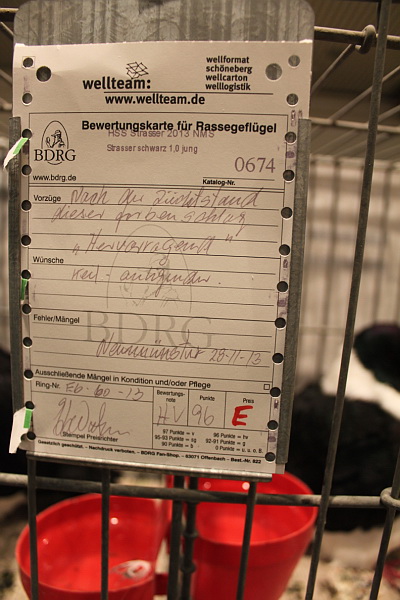 wellteam:
wellformat
schöneberg
wellcarton
welllogistik
www.wellteam.de
Bewertungskarte für Rassegeflügel
HSS Strasser 2013 NMS
Strasser schwarz 1,0 jung
BDRG
0674
www.bdrg.de
Katalog-Nr.
Vorzüge Nach der Zuchtstand
dieser
"Hervorragend"
Wünsche
BDRG
Fehler/Mängel
Neumünster 28-11-13
Ausschließende Mängel in Kondition und/oder Pflege
Ring-Nr. 13
Bewertungs-
note
HV
Punkte
96
Preis
E
97 Punkte = v
95-93 Punkte = sg
90 Punkte = b
96 Punkte = hv
92-91 Punkte = g
0 Punkte = u. o. E.
Stempel Preisrichter
Gesetzlich geschützt. - Nachdruck verboten. - BDRG Fan-Shop. - 63071 Offenbach - Best.-Nr. 822